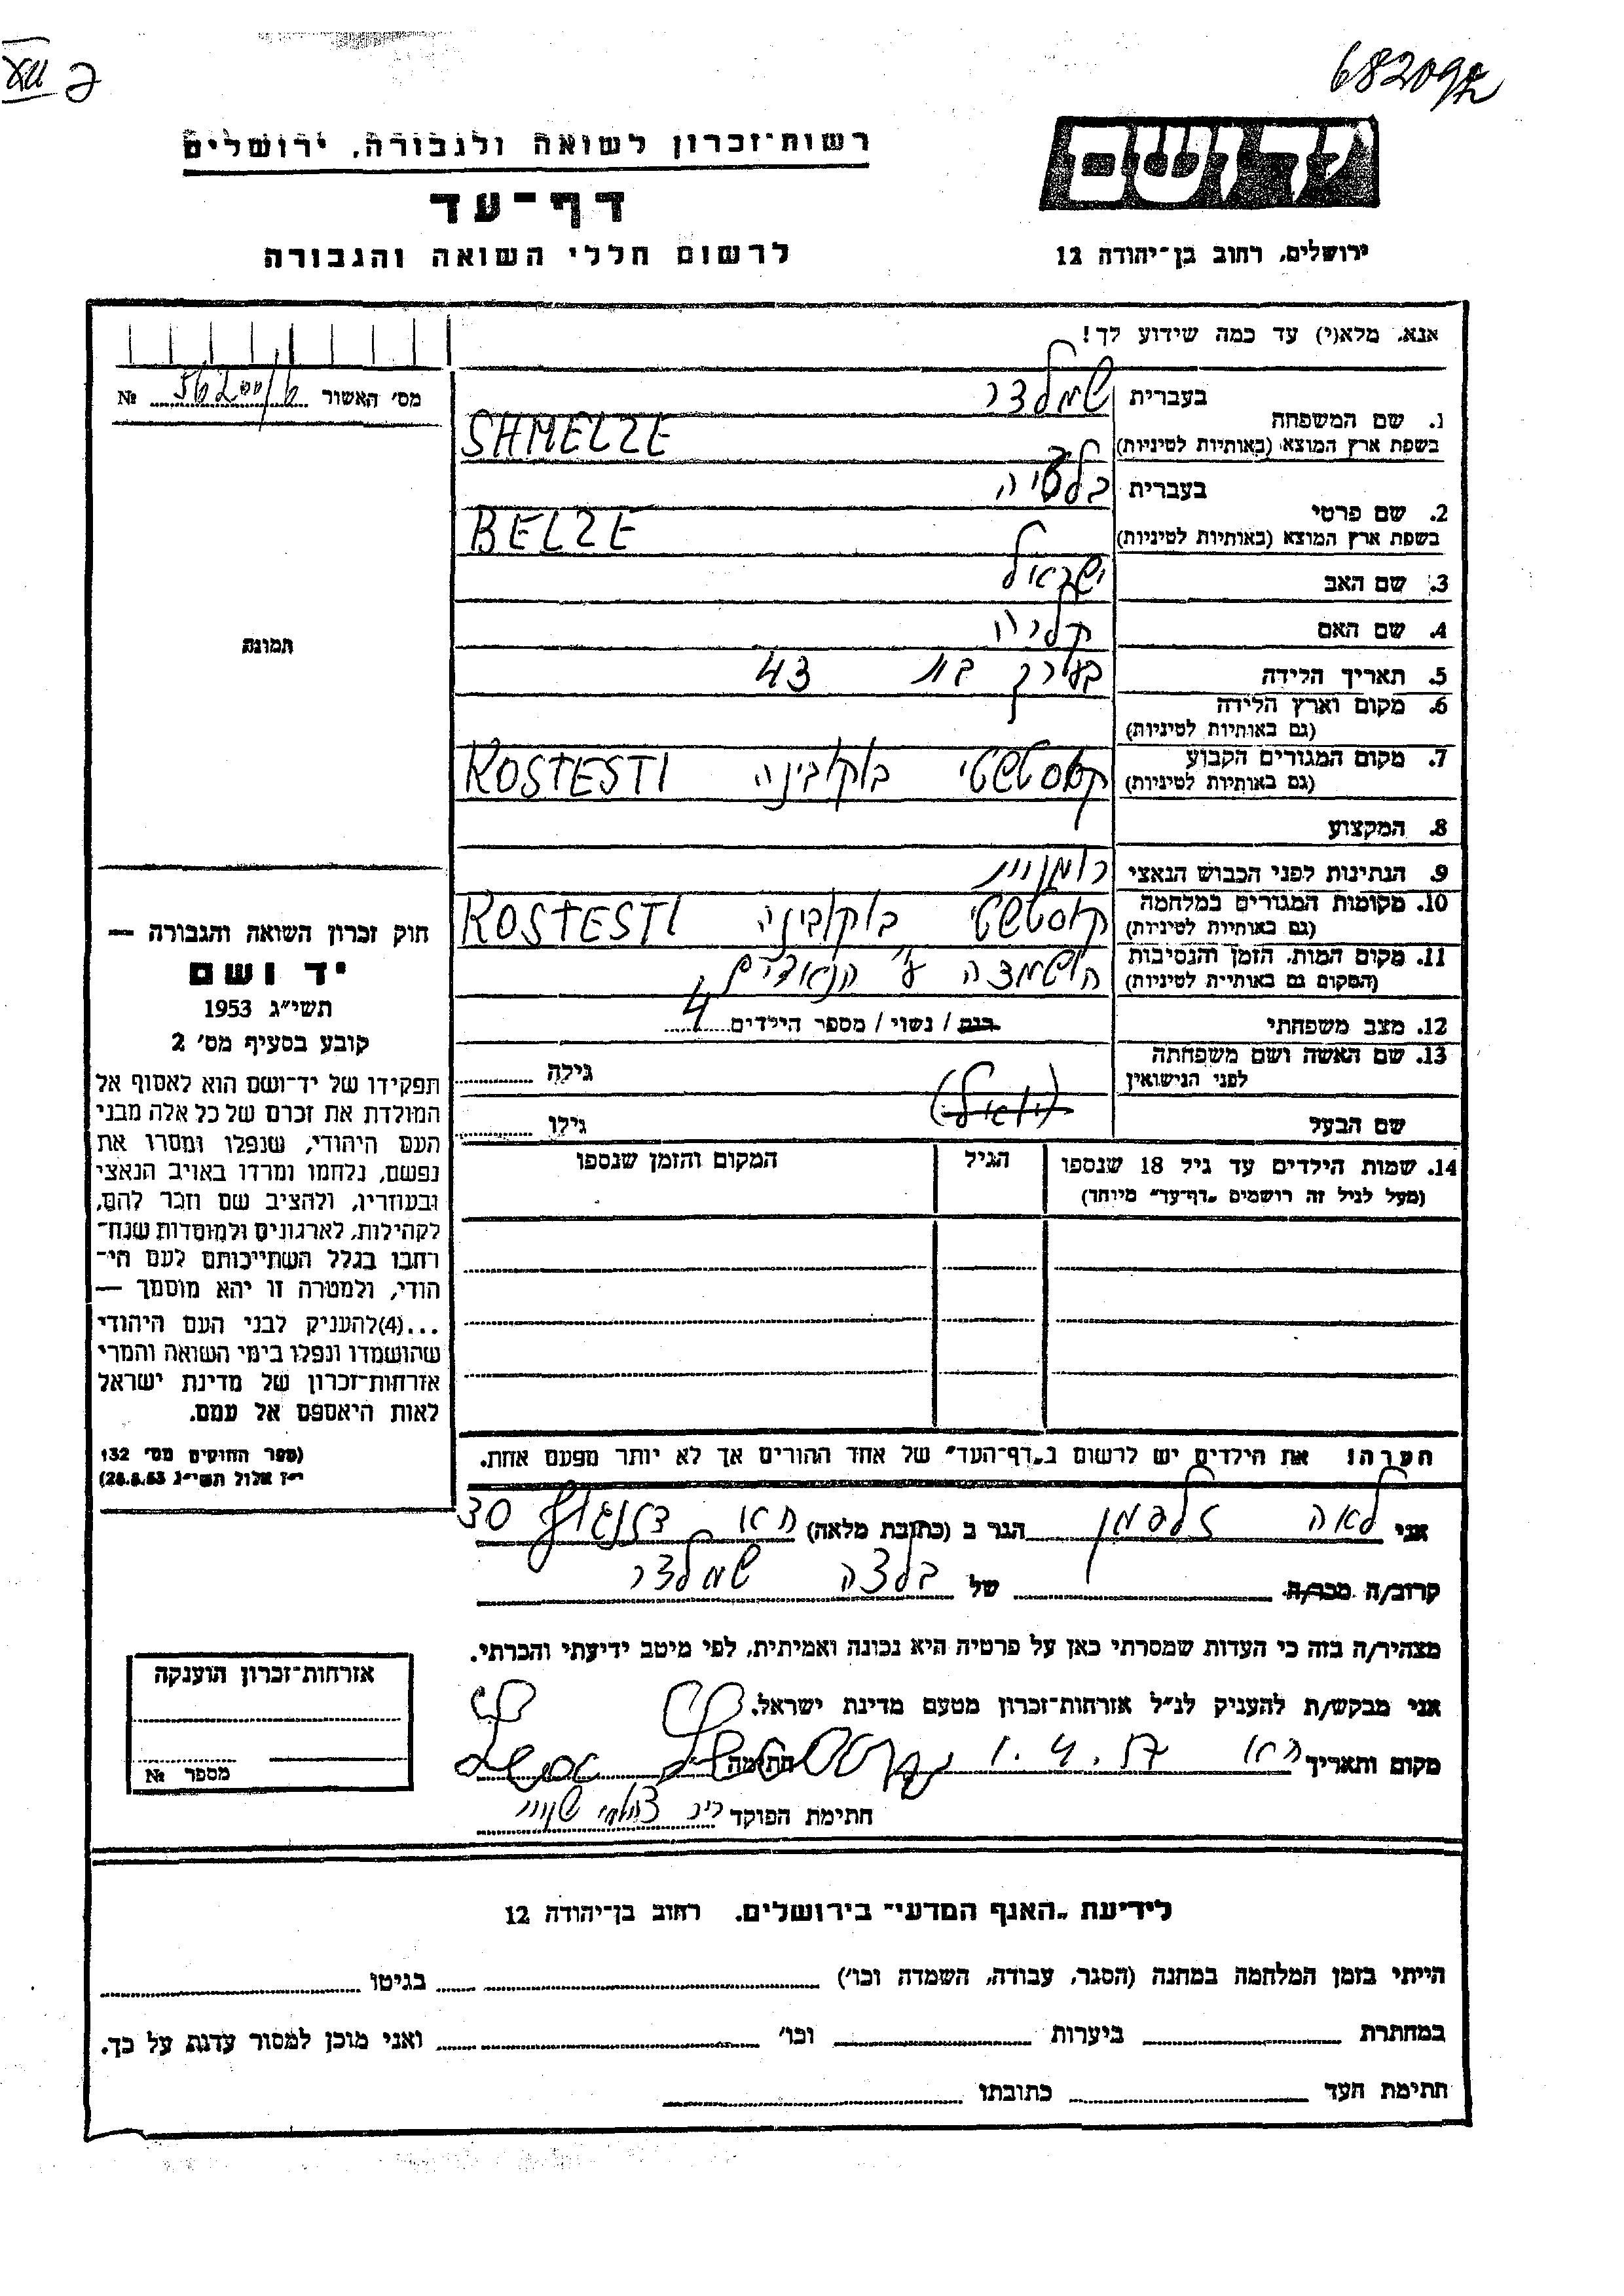 רשות־זכרון לשואה ולגבורה, ירושלים
דף־עד
לרשום חללי השואה והגבורה
ידושם
ירושלים, רחוב בן־יהודה 12
אנא, מלא(י) עד כמה שידוע לך!
מס׳ האשור №
תמונה
1. שם המשפחה בעברית שמלצר
בשפת ארץ המוצא (באותיות לטיניות) SHMELZE
2. שם פרטי בעברית
בשפת ארץ המוצא (באותיות לטיניות) BELZE
3. שם האב ישראל
4. שם האם
5. תאריך הלידה בערך בת 43
6. מקום וארץ הלידה
(גם באותיות לטיניות)
7. מקום המגורים הקבוע קוסטשטי בוקובינה KOSTESTI
(גם באותיות לטיניות)
8. המקצוע
9. הנתינות לפני הכבוש הנאצי רומנית
10. מקומות המגורים במלחמה קוסטשטי בוקובינה KOSTESTI
(גם באותיות לטיניות)
11. מקום המות, הזמן והנסיבות הושמדה ע״י הנאצים
(המקום גם באותיות לטיניות)
12. מצב משפחתי רוק / נשוי / מספר הילדים 4
13. שם האשה ושם משפחתה
לפני הנישואין גילה
שם הבעל גילו
14. שמות הילדים עד גיל 18 שנספו הגיל המקום והזמן שנספו
(מעל לגיל זה רושמים „דף־עד״ מיוחד)
הערה! את הילדים יש לרשום ב„דף־העד״ של אחד ההורים אך לא יותר מפעם אחת.
חוק זכרון השואה והגבורה —
יד ושם
תשי״ג 1953
קובע בסעיף מס׳ 2
תפקידו של יד־ושם הוא לאסוף אל
המולדת את זכרם של כל אלה מבני
העם היהודי, שנפלו ומסרו את
נפשם, נלחמו ומרדו באויב הנאצי
ובעוזריו, ולהציב שם וזכר להם,
לקהילות, לארגונים ולמוסדות שנח־
רחבו בגלל השתייכותם לעם הי־
הודי, ולמטרה זו יהא מוסמך —
...(4)להעניק לבני העם היהודי
שהושמדו ונפלו בימי השואה והמרי
אזרחות־זכרון של מדינת ישראל
לאות היאספם אל עמם.
(ספר החוקים מס׳ 132
י״ז אלול תשי״ג 28.8.53)
אני לאה זלפמן הגר ב (כתובת מלאה) ת״א דיזנגוף 30
קרוב/ה מכר/ה של בלצה שמלצר
מצהיר/ה בזה כי העדות שמסרתי כאן על פרטיה היא נכונה ואמיתית, לפי מיטב ידיעתי והכרתי.
אני מבקש/ת להעניק לנ״ל אזרחות־זכרון מטעם מדינת ישראל.
מקום ותאריך ת״א 1.4.57 חתימה
חתימת הפוקד
אזרחות־זכרון הוענקה
מספר №
לידיעת „האגף המדעי״ בירושלים, רחוב בן־יהודה 12
הייתי בזמן המלחמה במחנה (הסגר, עבודה, השמדה וכו׳) בגיטו
במחתרת ביערות וכו׳ ואני מוכן למסור עדות על כך.
חתימת העד כתובתו